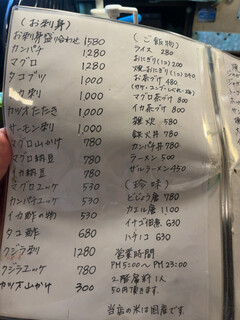 (お刺身)
お刺身盛り合わせ 1580
カンパチ 1280
マグロ 1280
タコブツ 1,000
イカ刺り 1,000
カツオたたき 1,000
サーモン刺り 1,000
マグロ山かけ 780
マグロ納豆 780
イカ納豆 780
マグロユッケ 530
カンパチユッケ 530
イカ酢の物 530
タコ酢 680
クジラ刺り 1280
クジラユッケ 780
カツオ山かけ 300
(ご飯物)
ライス 280
おにぎり(1コ)200
焼おにぎり(1コ)250
お茶づけ 480
マグロ茶づけ 800
イカ茶づけ 800
雑炊 580
鉄火丼 780
カンパチ丼 780
ラーメン 500
ザルラーメン 450
(珍味)
ビビンチョ星 780
カエル星 1100
イナゴ佃煮 630
ハチノコ 630
営業時間
PM5:00〜PM23:00
2階席料 1人
50円頂きます。
当店の米は国産です。